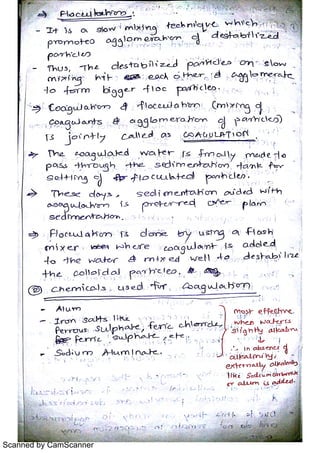 ⇒ Flocculation :
- It is a slow mixing technique which
promotes agglomeration of destabilized
particles
- Thus, The destabilized particles on slow
mixing hit each other & agglomerate
to form bigger floc particles.
⇒ Coagulation & flocculation (mixing of
coagulants & agglomeration of particles)
is jointly called as COAGULATION
⇒ The coagulated water is finally made to
pass through the sedimentation tank for
settling of flocculated particles.
⇒ These days, sedimentation aided with
coagulation is preferred over plain
sedimentation.
⇒ Flocculation is done by using a flash
mixer where coagulant is added
to the water & mixed well to destabilize
the colloidal particles.
Chemicals used for Coagulation
- Alum
- Iron salts like
Ferrous Sulphate, ferric chloride,
ferric sulphate, etc.
- Sodium Aluminate.
most effective
when water is
slightly alkaline
↓
∴ in absence of
alkalinity,
externally alkalinity
like Sodium carbonate
or alum is added.
Scanned by CamScanner